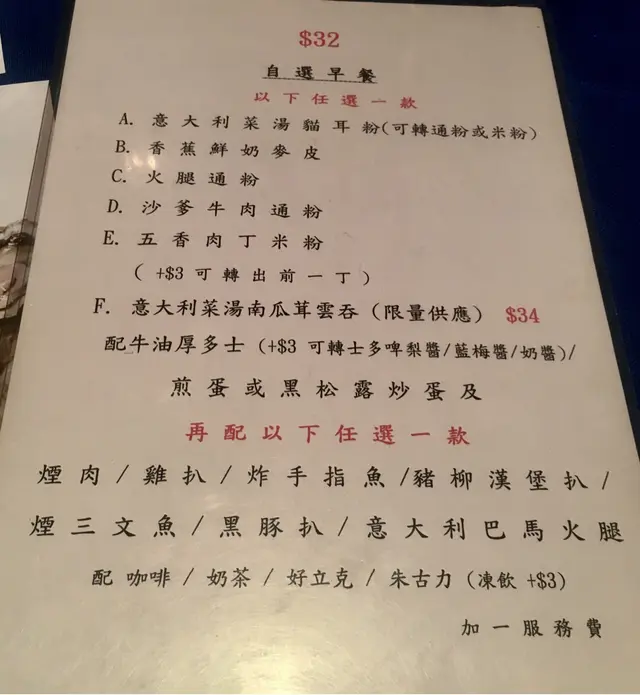 $32
自選早餐
以下任選一款
A. 意大利菜湯貓耳粉(可轉通粉或米粉)
B. 香蕉鮮奶麥皮
C. 火腿通粉
D. 沙爹牛肉通粉
E. 五香肉丁米粉
( +$3 可轉出前一丁 )
F. 意大利菜湯南瓜茸雲吞 (限量供應) $34
配牛油厚多士 (+$3 可轉士多啤梨醬/藍梅醬/奶醬)/
煎蛋或黑松露炒蛋及
再配以下任選一款
煙肉 / 雞扒 / 炸手指魚 /豬柳漢堡扒 /
煙三文魚 / 黑豚扒 / 意大利巴馬火腿
配 咖啡 / 奶茶 / 好立克 / 朱古力 (凍飲 +$3)
加一服務費